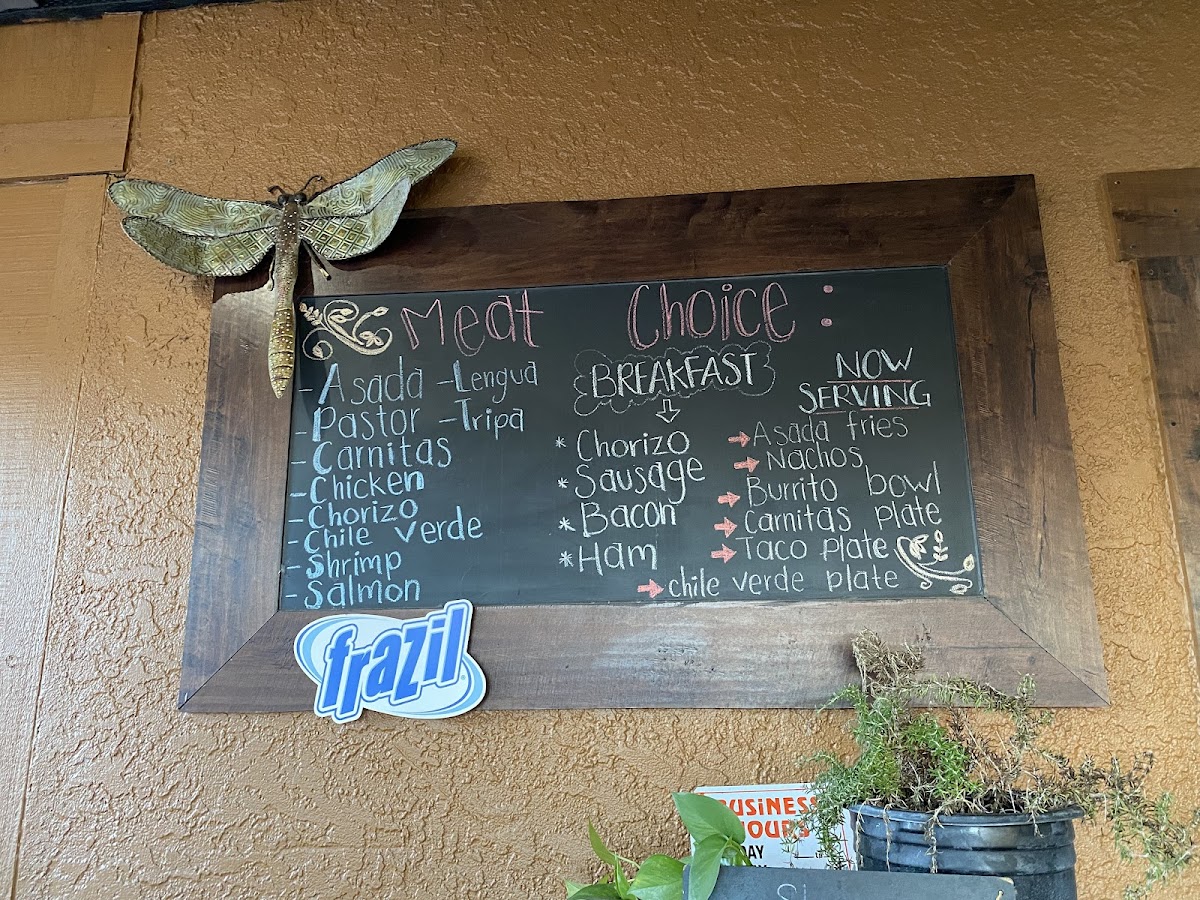 Meat Choice:
- Asada - Lengua
- Pastor - Tripa
- Carnitas
- Chicken
- Chorizo
- Chile verde
- Shrimp
- Salmon
BREAKFAST
* Chorizo
* Sausage
* Bacon
* Ham
NOW
SERVING
→ Asada fries
→ Nachos
→ Burrito bowl
→ Carnitas plate
→ Taco plate
→ chile verde plate
frazil
BUSINESS
HOURS